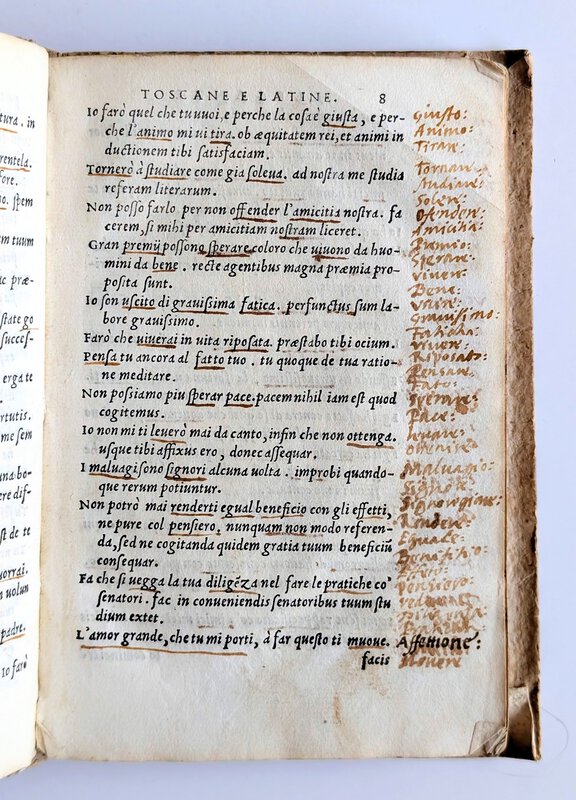 TOSCANE E LATINE. 8
Io farò quel che tu vuoi, e perche la cosa è giusta, e per-
che l'animo mi ui tira. ob æquitatem rei, et animi in
ductionem tibi satisfaciam.
Tornerò à studiare come gia soleua. ad nostra me studia
referam literarum.
Non posso farlo per non offender l'amicitia nostra. fa
cerem, si mihi per amicitiam nostram liceret.
Gran premij possono sperare coloro che uiuono da huo-
mini da bene. recte agentibus magna præmia pro-
posita sunt.
Io son uscito di grauissima fatica. perfunctus sum la-
bore grauissimo.
Farò che uiuerai in uita riposata. præstabo tibi ocium.
Pensa tu ancora al fatto tuo. tu quoque de tua ratio-
ne meditare.
Non possiamo piu sperar pace. pacem nihil iam est quod
cogitemus.
Io non mi ti leuerò mai da canto, infin che non ottenga.
usque tibi affixus ero, donec assequar.
I maluagi sono signori alcuna uolta. improbi quando-
que rerum potiuntur.
Non potrò mai renderti egual beneficio con gli effetti,
ne pure col pensiero. nunquam non modo referen-
da, sed ne cogitanda quidem gratia tuum beneficiũ
consequar.
Fa che si uegga la tua diligẽza nel fare le pratiche co'
senatori. fac in conueniendis senatoribus tuum stu
dium extet.
L'amor grande, che tu mi porti, à far questo ti muoue.
facis
Giusto:
Animo:
Tirar:
Tornar:
Studiare:
Soler:
Offender:
Amicitia:
Premio:
Sperare:
Viver:
Bene:
Grauissimo:
Faticha:
Viver:
Riposato:
Pensare:
Fato:
Sperare:
Pace:
Maluagio:
Signore:
Rendere:
Equale:
Benefitio:
Affettione:
Movere
tura. in
rentela.
fore.
spem
um tuum
ic præ-
state go
succes-
erga te
rtutis.
me sem
na bo-
ere dif-
st de te
uorrai.
n uolun
padre.
Io farò